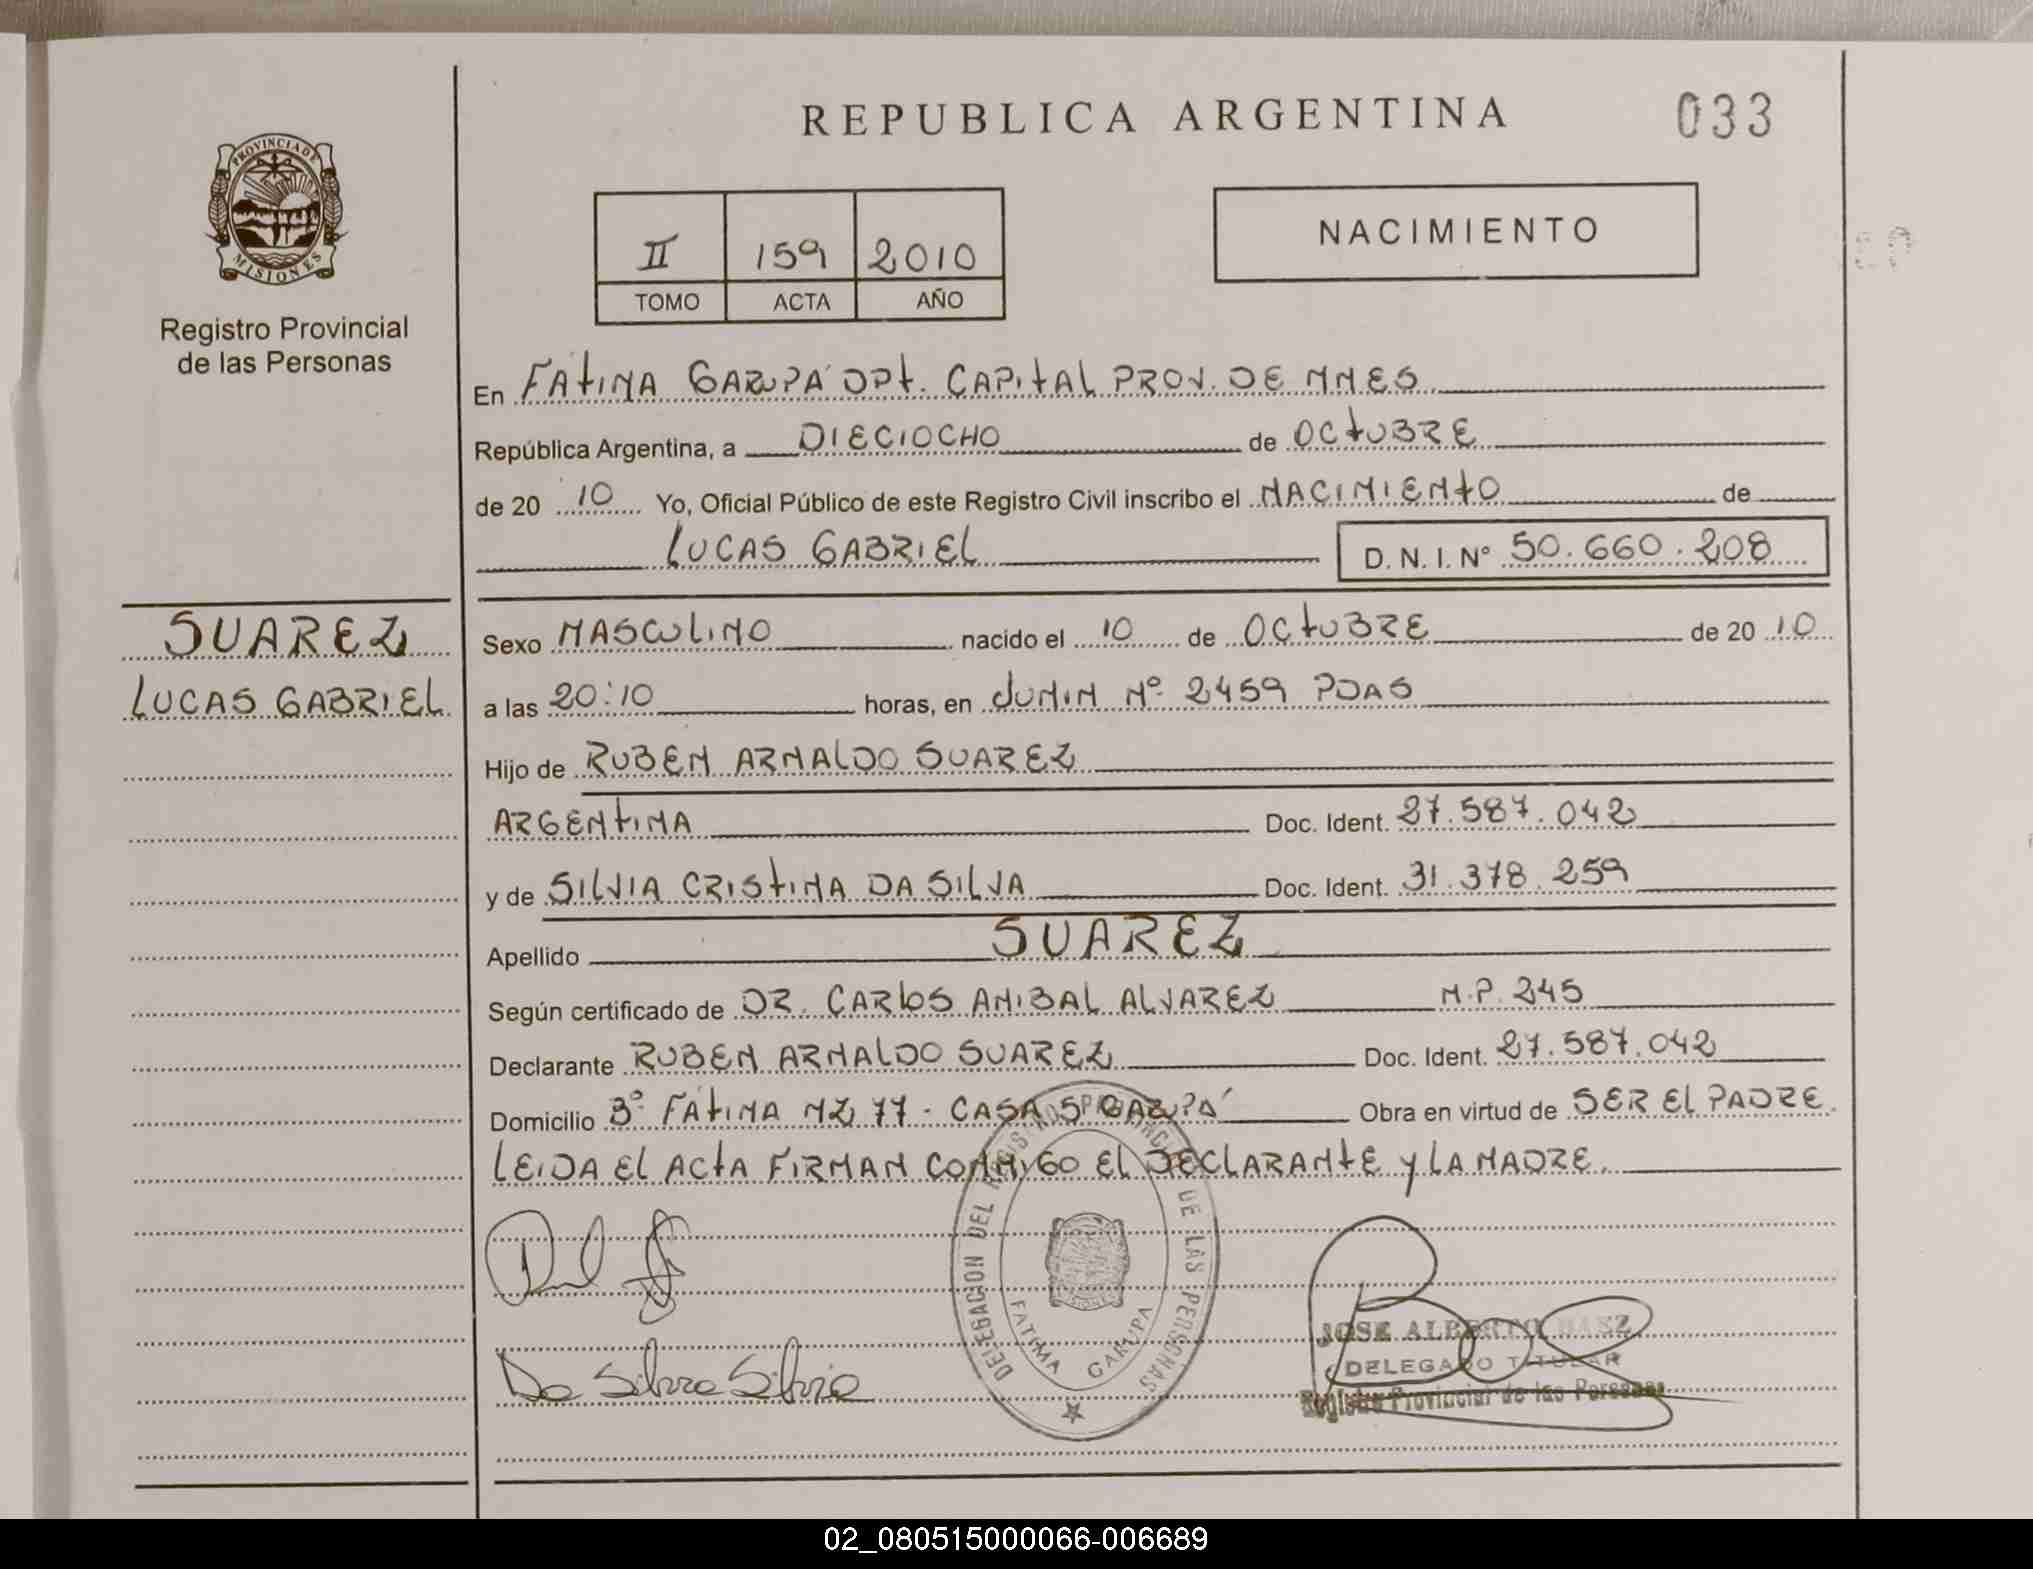 REPUBLICA ARGENTINA
033
PROVINCIA DE
MISIONES
Registro Provincial
de las Personas
II 159 2010
TOMO ACTA AÑO
NACIMIENTO
En FÁTIMA GARUPÁ DPT. CAPITAL PROV. DE MNES
República Argentina, a DIECIOCHO de OCTUBRE
de 20 10 Yo, Oficial Público de este Registro Civil inscribo el NACIMIENTO de
LUCAS GABRIEL D. N. I. N° 50.660.208
SUAREZ
LUCAS GABRIEL
Sexo MASCULINO nacido el 10 de OCTUBRE de 20 10
a las 20:10 horas, en JUNIN Nº 2459 PDAS
Hijo de RUBEN ARNALDO SUAREZ
ARGENTINA Doc. Ident. 27.587.042
y de SILVIA CRISTINA DA SILVA Doc. Ident. 31.378.259
Apellido SUAREZ
Según certificado de DR. CARLOS ANIBAL ALVAREZ M.P. 245
Declarante RUBEN ARNALDO SUAREZ Doc. Ident. 27.587.042
Domicilio Bº FÁTIMA MZ 77 - CASA 5 GARUPÁ Obra en virtud de SER EL PADRE
LEIDA EL ACTA FIRMAN CONMIGO EL DECLARANTE Y LA MADRE.
DELEGACION DEL REGISTRO PROVINCIAL DE LAS PERSONAS
FATIMA GARUPA
Da Silva Silvia
JOSE ALBERTO BAEZ
DELEGADO TITULAR
Registro Provincial de las Personas
02_080515000066-006689